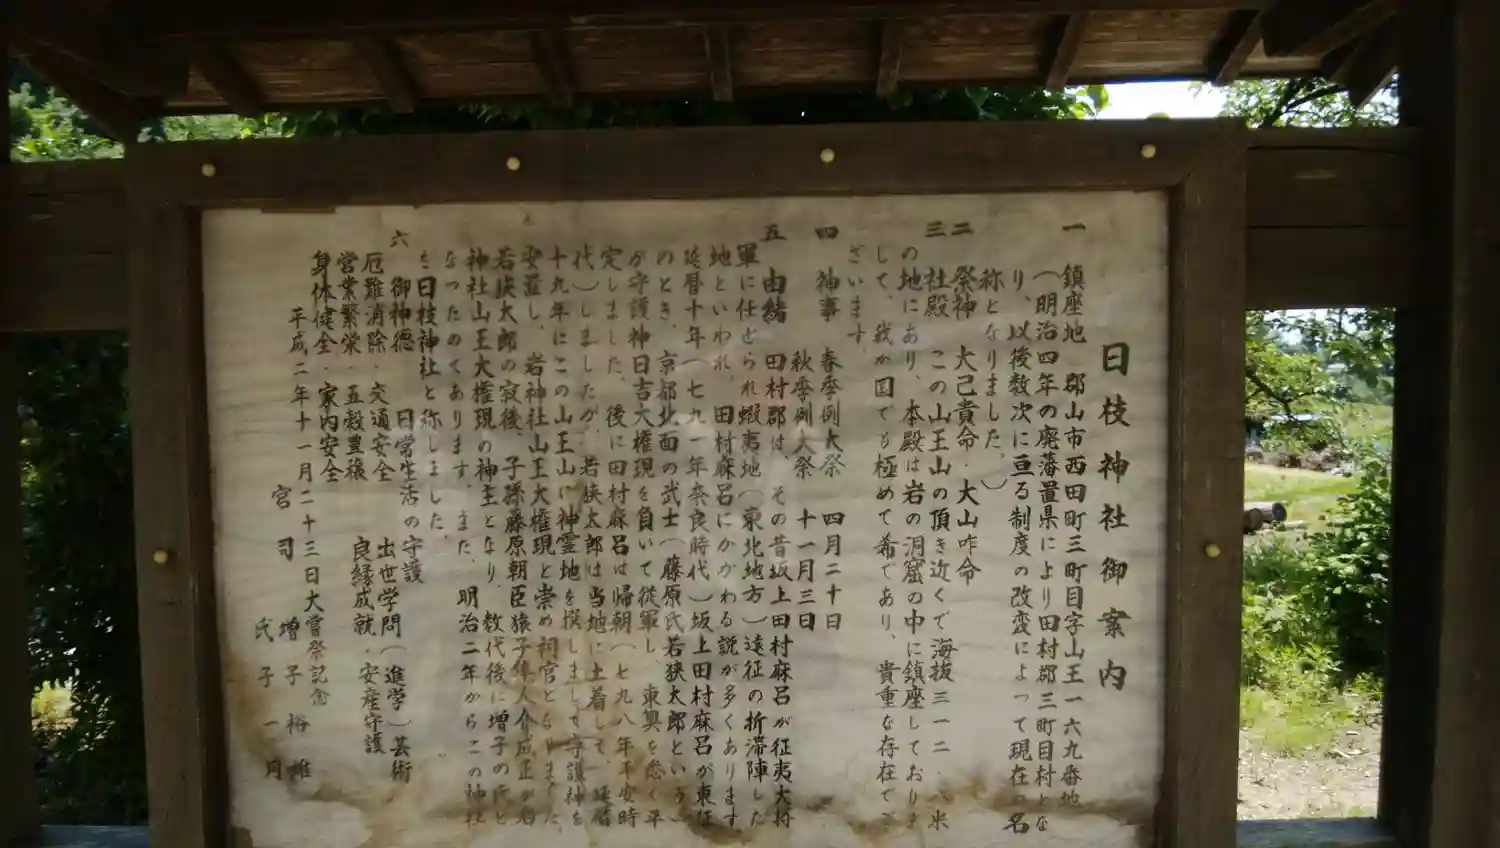 日枝神社御案内
一 鎮座地 郡山市西田町三町目字山王一六九番地
(明治四年の廃藩置県により田村郡三町目村とな
り、以後数次に亘る制度の改変によって現在の名
称となりました。)
二 祭神 大己貴命・大山咋命
三 社殿 この山王山の頂き近くで海抜三一二・八米
の地にあり、本殿は岩の洞窟の中に鎮座しておりま
して、我が国でも極めて希であり、貴重な存在でご
ざいます。
四 神事 春季例大祭 四月二十日
秋季例大祭 十一月三日
五 由緒 田村郡は、その昔坂上田村麻呂が征夷大将
軍に任ぜられ蝦夷地(東北地方)遠征の折滞陣した
地といわれ、田村麻呂にかかわる説が多くあります。
延暦十年(七九一年奈良時代)坂上田村麻呂が東征
のとき、京都北面の武士(藤原氏若狭太郎という)
が守護神日吉大権現を負いて従軍し、東奥を悉く平
定しました。後に田村麻呂は帰朝(七九八年平安時
代)しましたが、若狭太郎は当地に土着して、延暦
十九年にこの山王山に神霊地を撰しまして守護神を
安置し、岩神社山王大権現と崇め祠官となりました。
若狭太郎の寂後、子孫藤原朝臣猿子隼人介成正が岩
神社山王大権現の神主となり、数代後に増子の氏と
なったのであります。また、明治二年からこの神社
を日枝神社と称しました。
六 御神徳 日常生活の守護
厄難消除・交通安全 出世学問(進学)芸術
営業繁栄・五穀豊穣 良縁成就・安産守護
身体健全・家内安全
平成二年十一月二十三日大嘗祭記念
宮司 増子裕雄
氏子一同